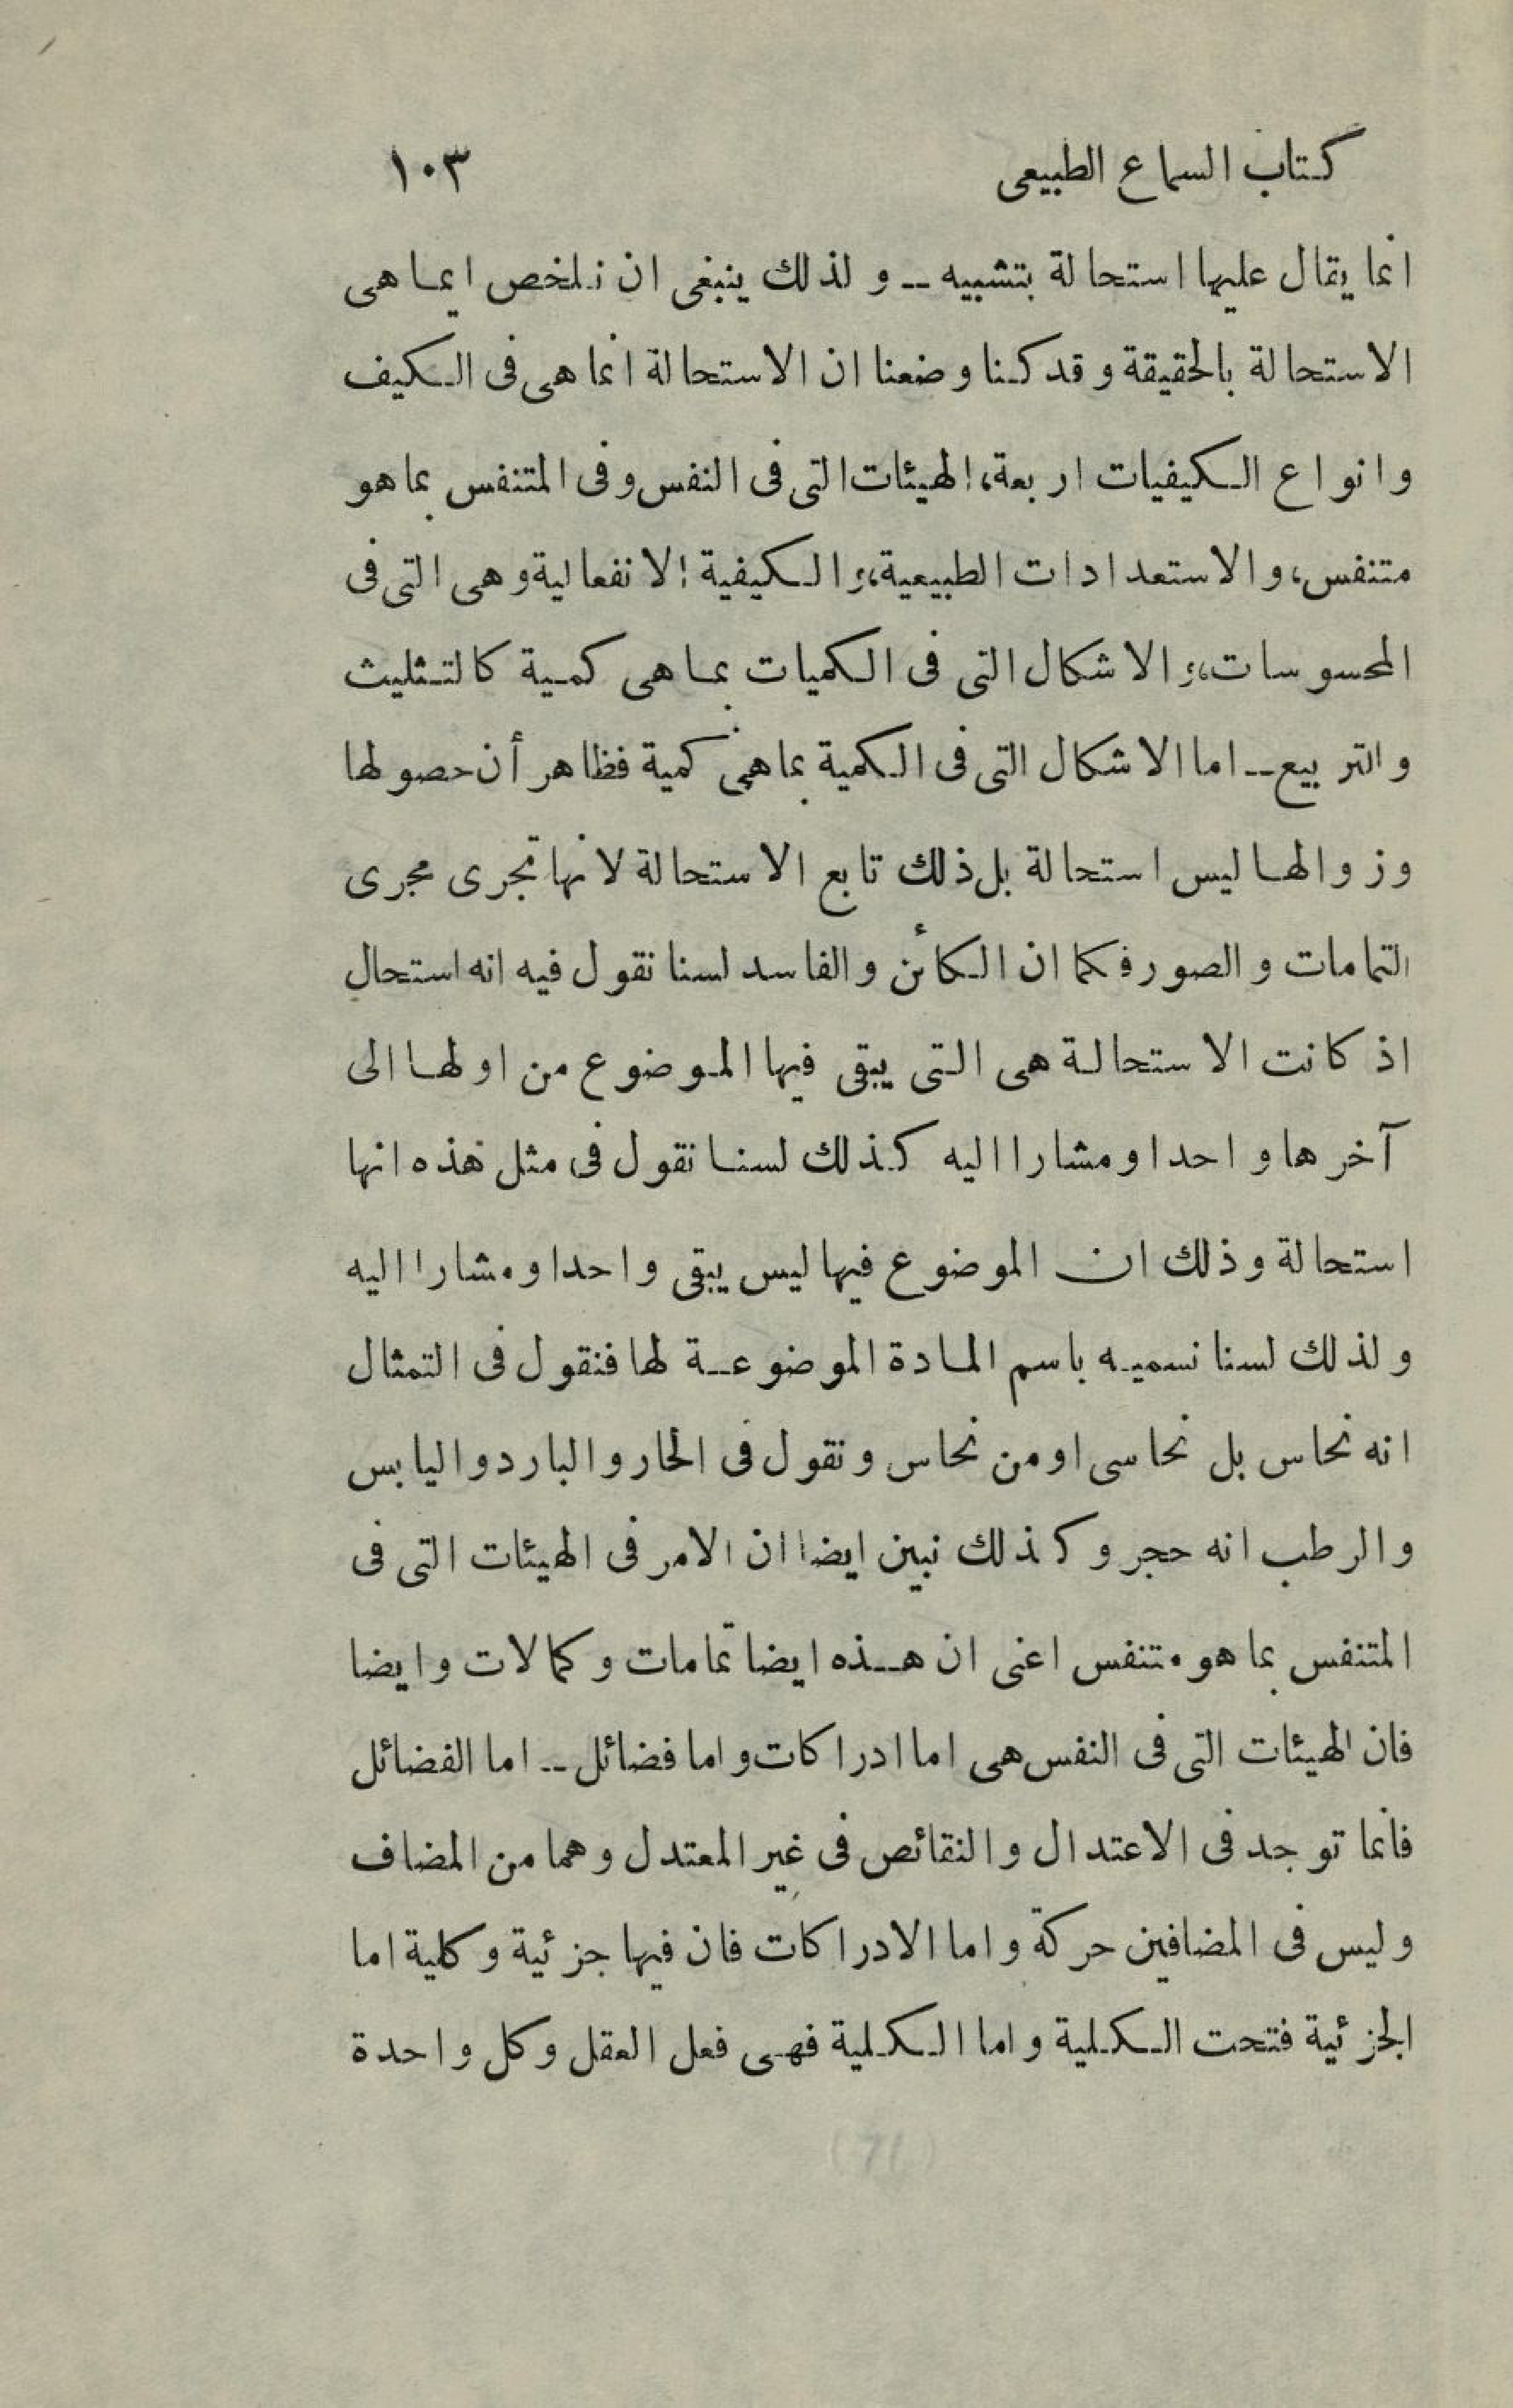 كتاب السماع الطبيعى ١٠٣
انما يقال عليها استحالة بتشبيه -- و لذلك ينبغى ان نلخص ايما هى
الاستحالة بالحقيقة و قد كنا وضعنا ان الاستحالة انما هى فى الكيف
و انواع الكيفيات اربعة، الهيئات التى فى النفس و فى المتنفس بما هو
متنفس، و الاستعدادات الطبيعية، و الكيفية الانفعالية و هى التى فى
المحسوسات، و الاشكال التى فى الكميات بما هى كمية كالتثليث
و التربيع -- اما الاشكال التى فى الكمية بما هى كمية فظاهر أن حصولها
وزوالها ليس استحالة بل ذلك تابع الاستحالة لانها تجرى مجرى
التمامات و الصور فكما ان الكائن و الفاسد لسنا نقول فيه انه استحال
اذ كانت الاستحالة هى التى يبقى فيها الموضوع من اولها الى
آخرها واحدا و مشارا اليه كذلك لسنا نقول فى مثل هذه انها
استحالة و ذلك ان الموضوع فيها ليس يبقى واحدا و مشارا اليه
و لذلك لسنا نسميه باسم المادة الموضوعة لها فنقول فى التمثال
انه نحاس بل نحاسى او من نحاس و نقول فى الحار و البارد و اليابس
و الرطب انه حجر و كذلك نبين ايضا ان الامر فى الهيئات التى فى
المتنفس بما هو متنفس اعنى ان هذه ايضا تمامات و كمالات و ايضا
فان الهيئات التى فى النفس هى اما ادراكات و اما فضائل -- اما الفضائل
فانما توجد فى الاعتدال و النقائص فى غير المعتدل و هما من المضاف
و ليس فى المضافين حركة و اما الادراكات فان فيها جزئية و كلية اما
الجزئية فتحت الكلية و اما الكلية فهى فعل العقل و كل واحدة